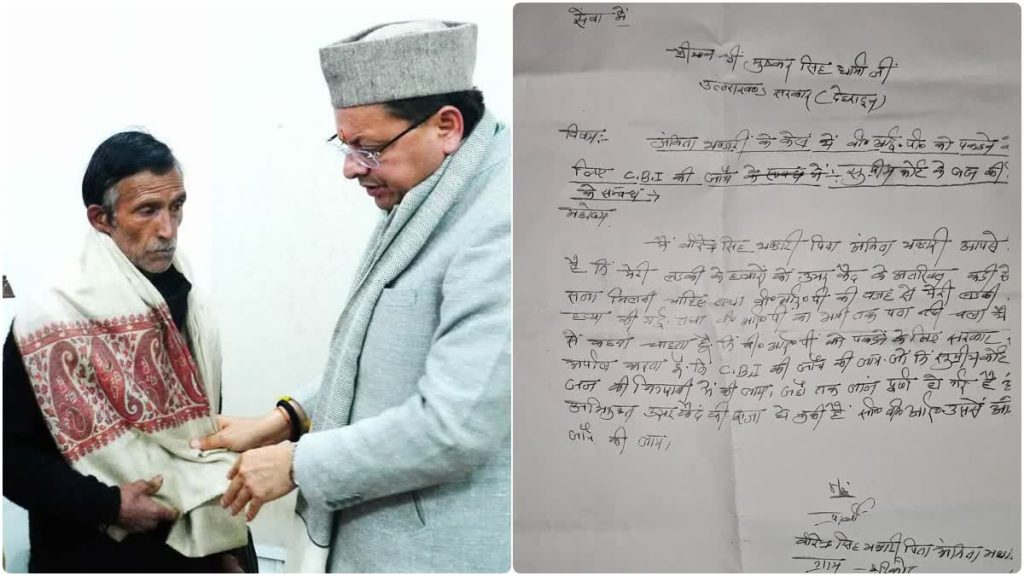 सेवा में
श्रीमान श्री पुष्कर सिंह धामी जी
उत्तराखण्ड सरकार (देहरादून)
विषय:- अंकिता भण्डारी के केस में वी०आई०पी० को पकडने के
लिए C.B.I की जाँच के सम्बध में :- सुप्रीम कोर्ट के जज की
के सम्बध
महोदय
मैं वीरेन्द्र सिंह भण्डारी पिता अंकिता भण्डारी आपसे
है कि मेरी लडकी के हत्यारों को उम्र कैद के अतिरिक्त कडी से
सजा मिलनी चाहिए तथा वी०आई०पी की वजह से मेरी लडकी
हत्या की गई तथा वी० आई०पी का अभी तक पता नही चला है
मै कहना चाहता हूँ कि वी० आई० पी को पकडने के लिए सरकार
करता हूँ कि C.B.I की जाँच की जाय जो कि सुप्रीम कोर्ट
जज की निगरानी में की जाय। जहाँ तक जाँच पूर्ण हो गई है
उम्र कैद की सजा हो चुकी है
जाँच की जाय।
प्रार्थी
वीरेन्द्र सिंह भण्डारी पिता अंकिता
ग्राम -